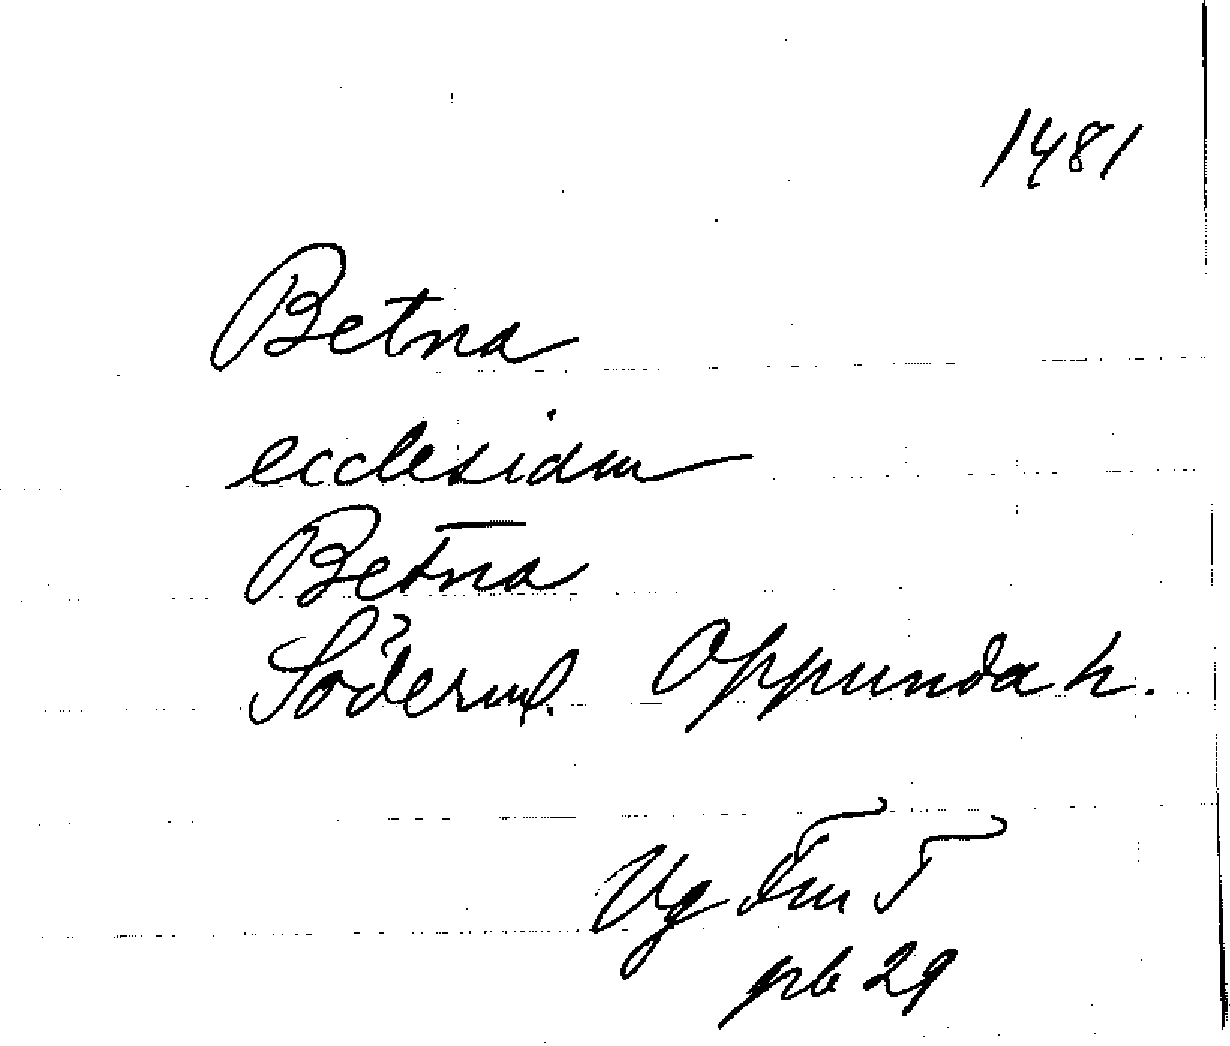 1481
Betna
ecclesiam
Betna
Söderml. Oppunda h.
Vg Fru T
pb 29